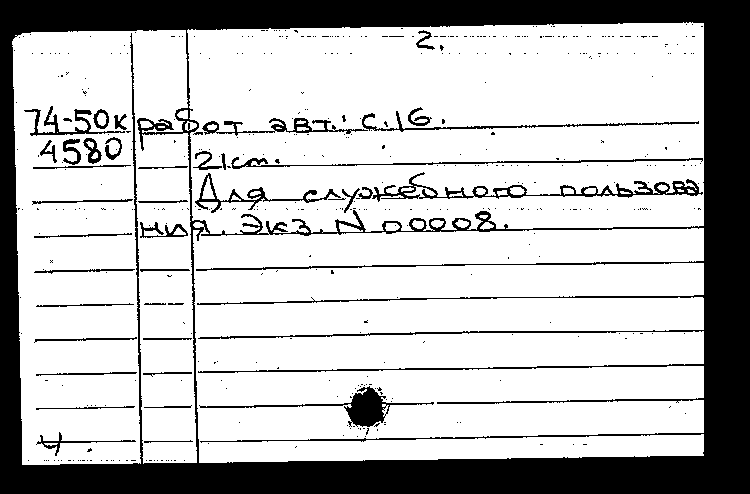 2.
74-50к работ авт.: с.16.
4580
21 cm.
Для служебного пользова
ния. Экз. N 00008.
4.